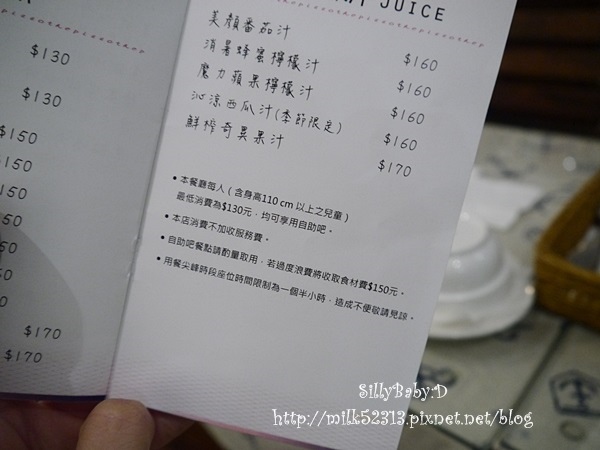 JUICE
$130
$130
$150
$150
$150
$170
$170
美顏番茄汁 $160
消暑蜂蜜檸檬汁 $160
魔力蘋果檸檬汁 $160
沁涼西瓜汁(季節限定) $160
鮮榨奇異果汁 $170
• 本餐廳每人(含身高110 cm 以上之兒童)
最低消費為$130元，均可享用自助吧。
• 本店消費不加收服務費。
• 自助吧餐點請酌量取用，若過度浪費將收取食材費$150元。
• 用餐尖峰時段座位時間限制為一個半小時，造成不便敬請見諒。
SillyBaby:D
http://milk52313.pixnet.net/blog